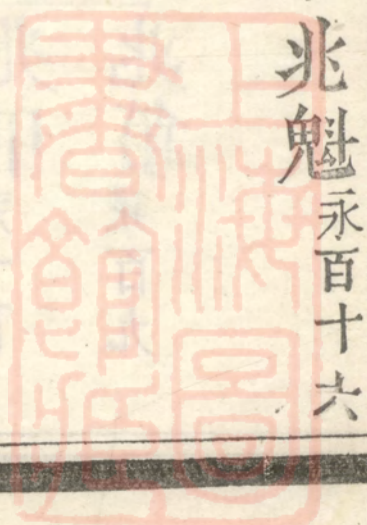 兆魁永百十六
上海圖
書館藏